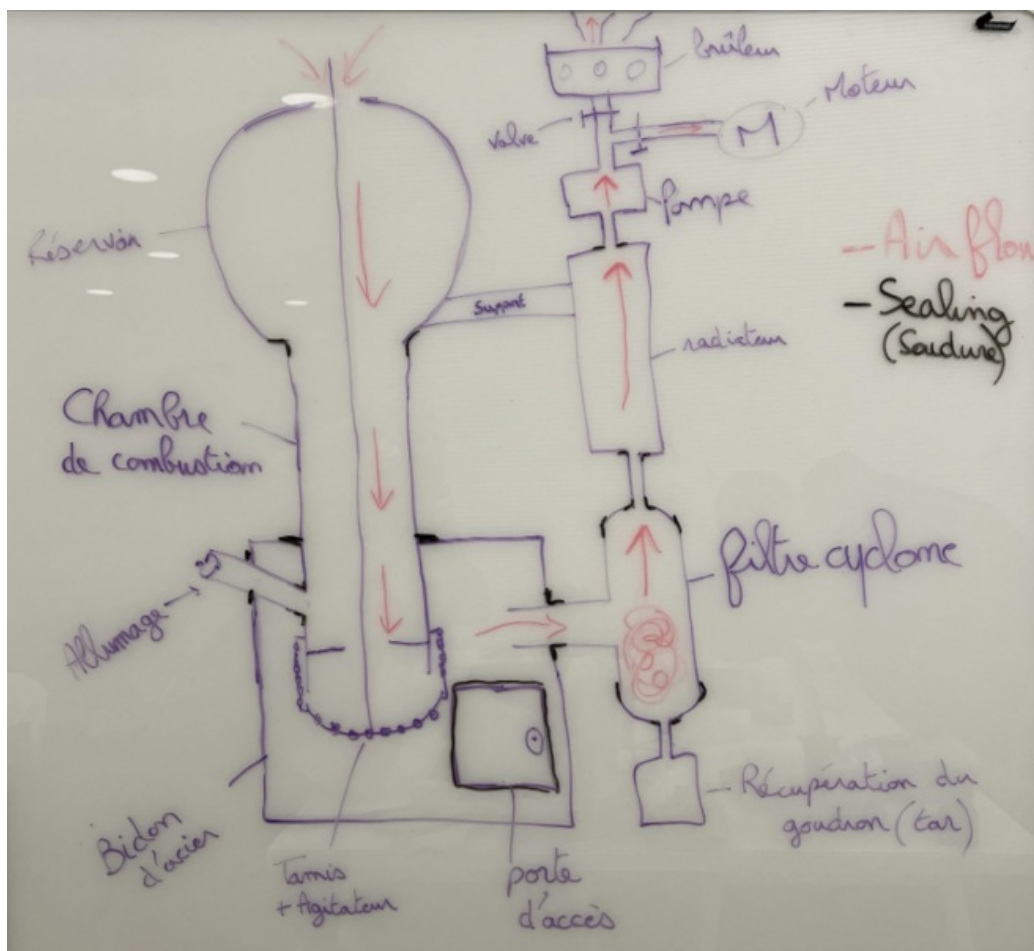 brûleur
Moteur
Valve
M
Pompe
Réservoir
- Air flow
Support
- Sealing
(Soudure)
radiateur
Chambre
de combustion
filtre cyclone
Allumage
Récupération du
goudron (tar)
Bidon
d'acier
Tamis
+ Agitateur
porte
d'accès